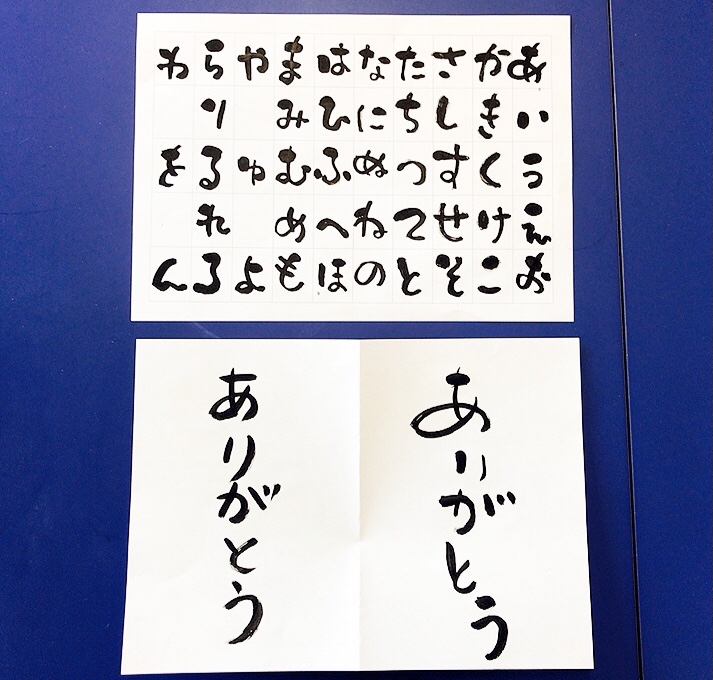 あいうえお
かきくけこ
さしすせそ
たちつてと
なにぬねの
はひふへほ
まみむめも
やゆよ
らりるれろ
わをん
ありがとう
ありがとう